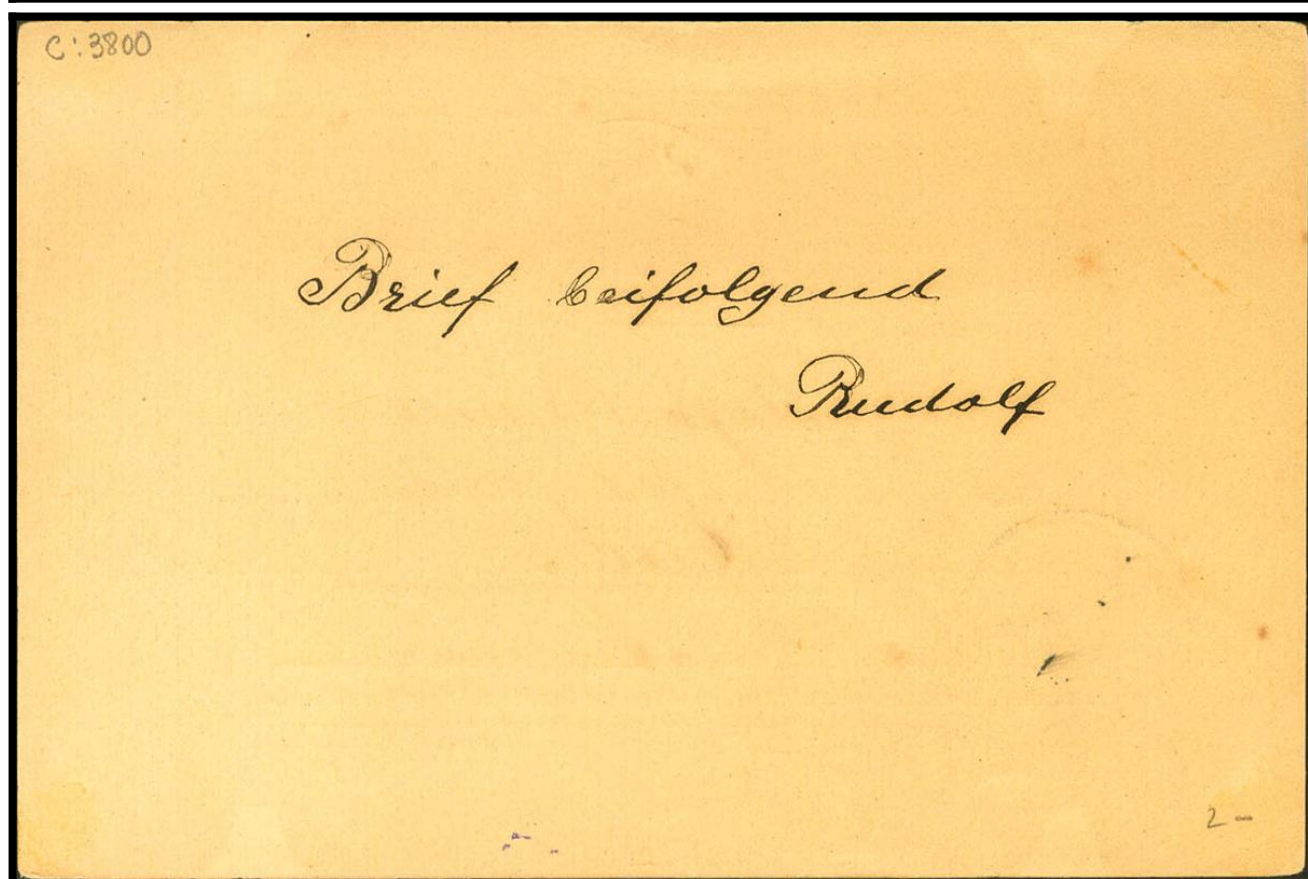 C:3800
Brief beifolgend
Rudolf
2 -